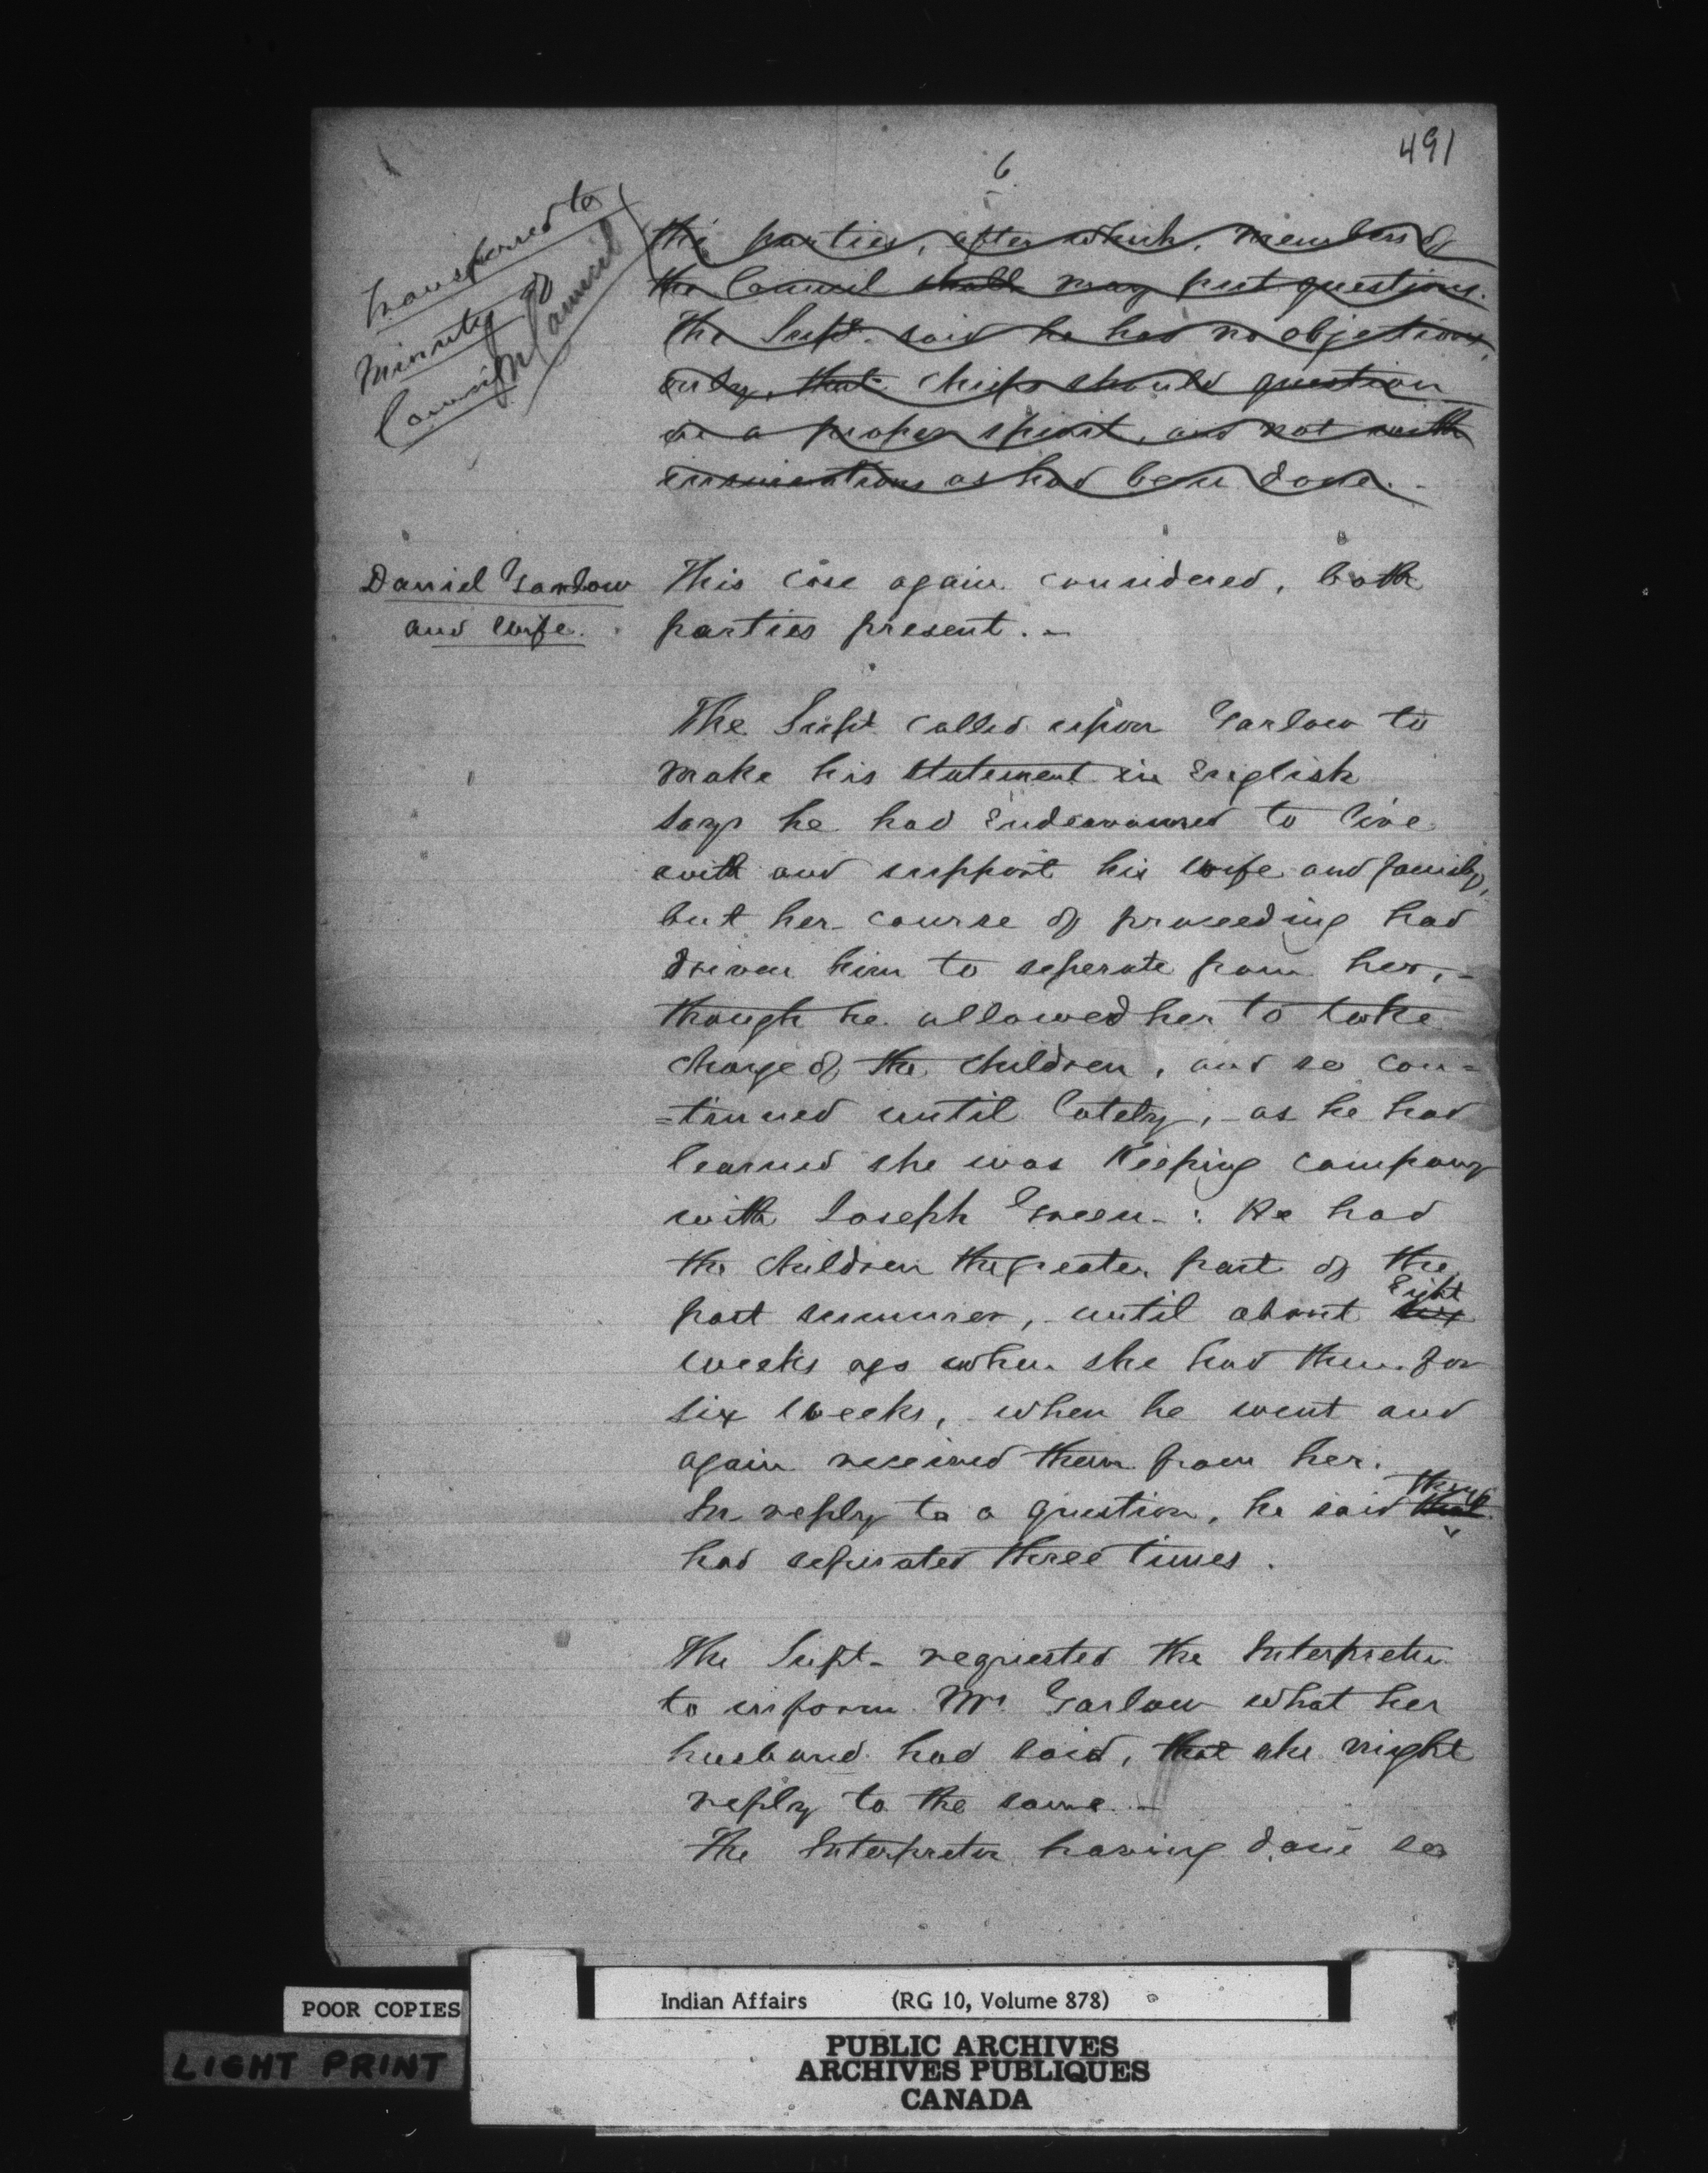 491
6
transferred to
minutes of
Council
Council
the parties, after which, members of
the Council shall may put questions.
The Supt. said he had no objections,
only, that chiefs should question
in a proper spirit, and not with
insinuations as had been done. -
Daniel Garlow
and wife.
This case again considered, both
parties present. -
The Supt called upon Garlow to
make his statement in English
says he had Endeavoured to live
with and support his wife and family,
but her course of proceeding had
driven him to seperate from her, -
though he allowed her to take
charge of the children, and so con=
=tinued until lately, - as he had
learned she was Keeping company
with Joseph Green - : He had
the children the greater part of the
past summer, until about six Eight
weeks ago when she had them for
six weeks, when he went and
again received them from her.
In reply to a question, he said that they
had seperated three times.
The Supt - requested the Interpreter
to inform Mrs Garlow what her
husband had said, that she might
reply to the same. -
The Interpreter having done so
POOR COPIES
LIGHT PRINT
Indian Affairs (RG 10, Volume 878)
PUBLIC ARCHIVES
ARCHIVES PUBLIQUES
CANADA